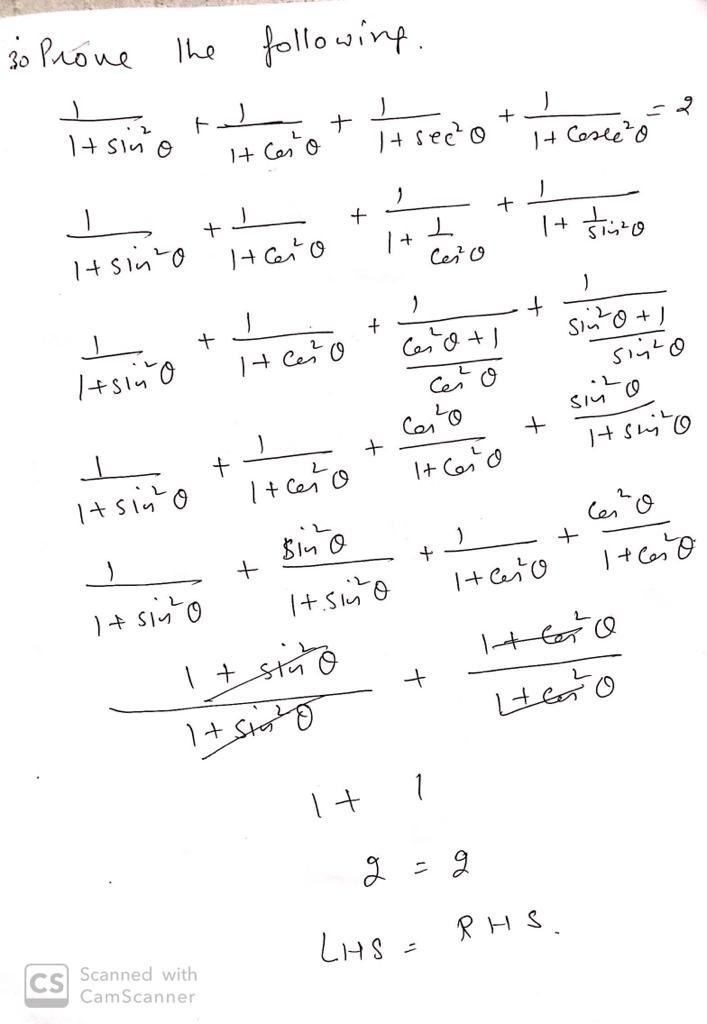 30 Prove the following.
1/(1+sin²θ) + 1/(1+cos²θ) + 1/(1+sec²θ) + 1/(1+cosec²θ) = 2
1/(1+sin²θ) + 1/(1+cos²θ) + 1/(1+1/cos²θ) + 1/(1+1/sin²θ)
1/(1+sin²θ) + 1/(1+cos²θ) + 1/((cos²θ+1)/cos²θ) + 1/((sin²θ+1)/sin²θ)
1/(1+sin²θ) + 1/(1+cos²θ) + cos²θ/(1+cos²θ) + sin²θ/(1+sin²θ)
1/(1+sin²θ) + sin²θ/(1+sin²θ) + 1/(1+cos²θ) + cos²θ/(1+cos²θ)
(1+sin²θ)/(1+sin²θ) + (1+cos²θ)/(1+cos²θ)
1+ 1
2 = 2
LHS = RHS.
CS Scanned with
CamScanner